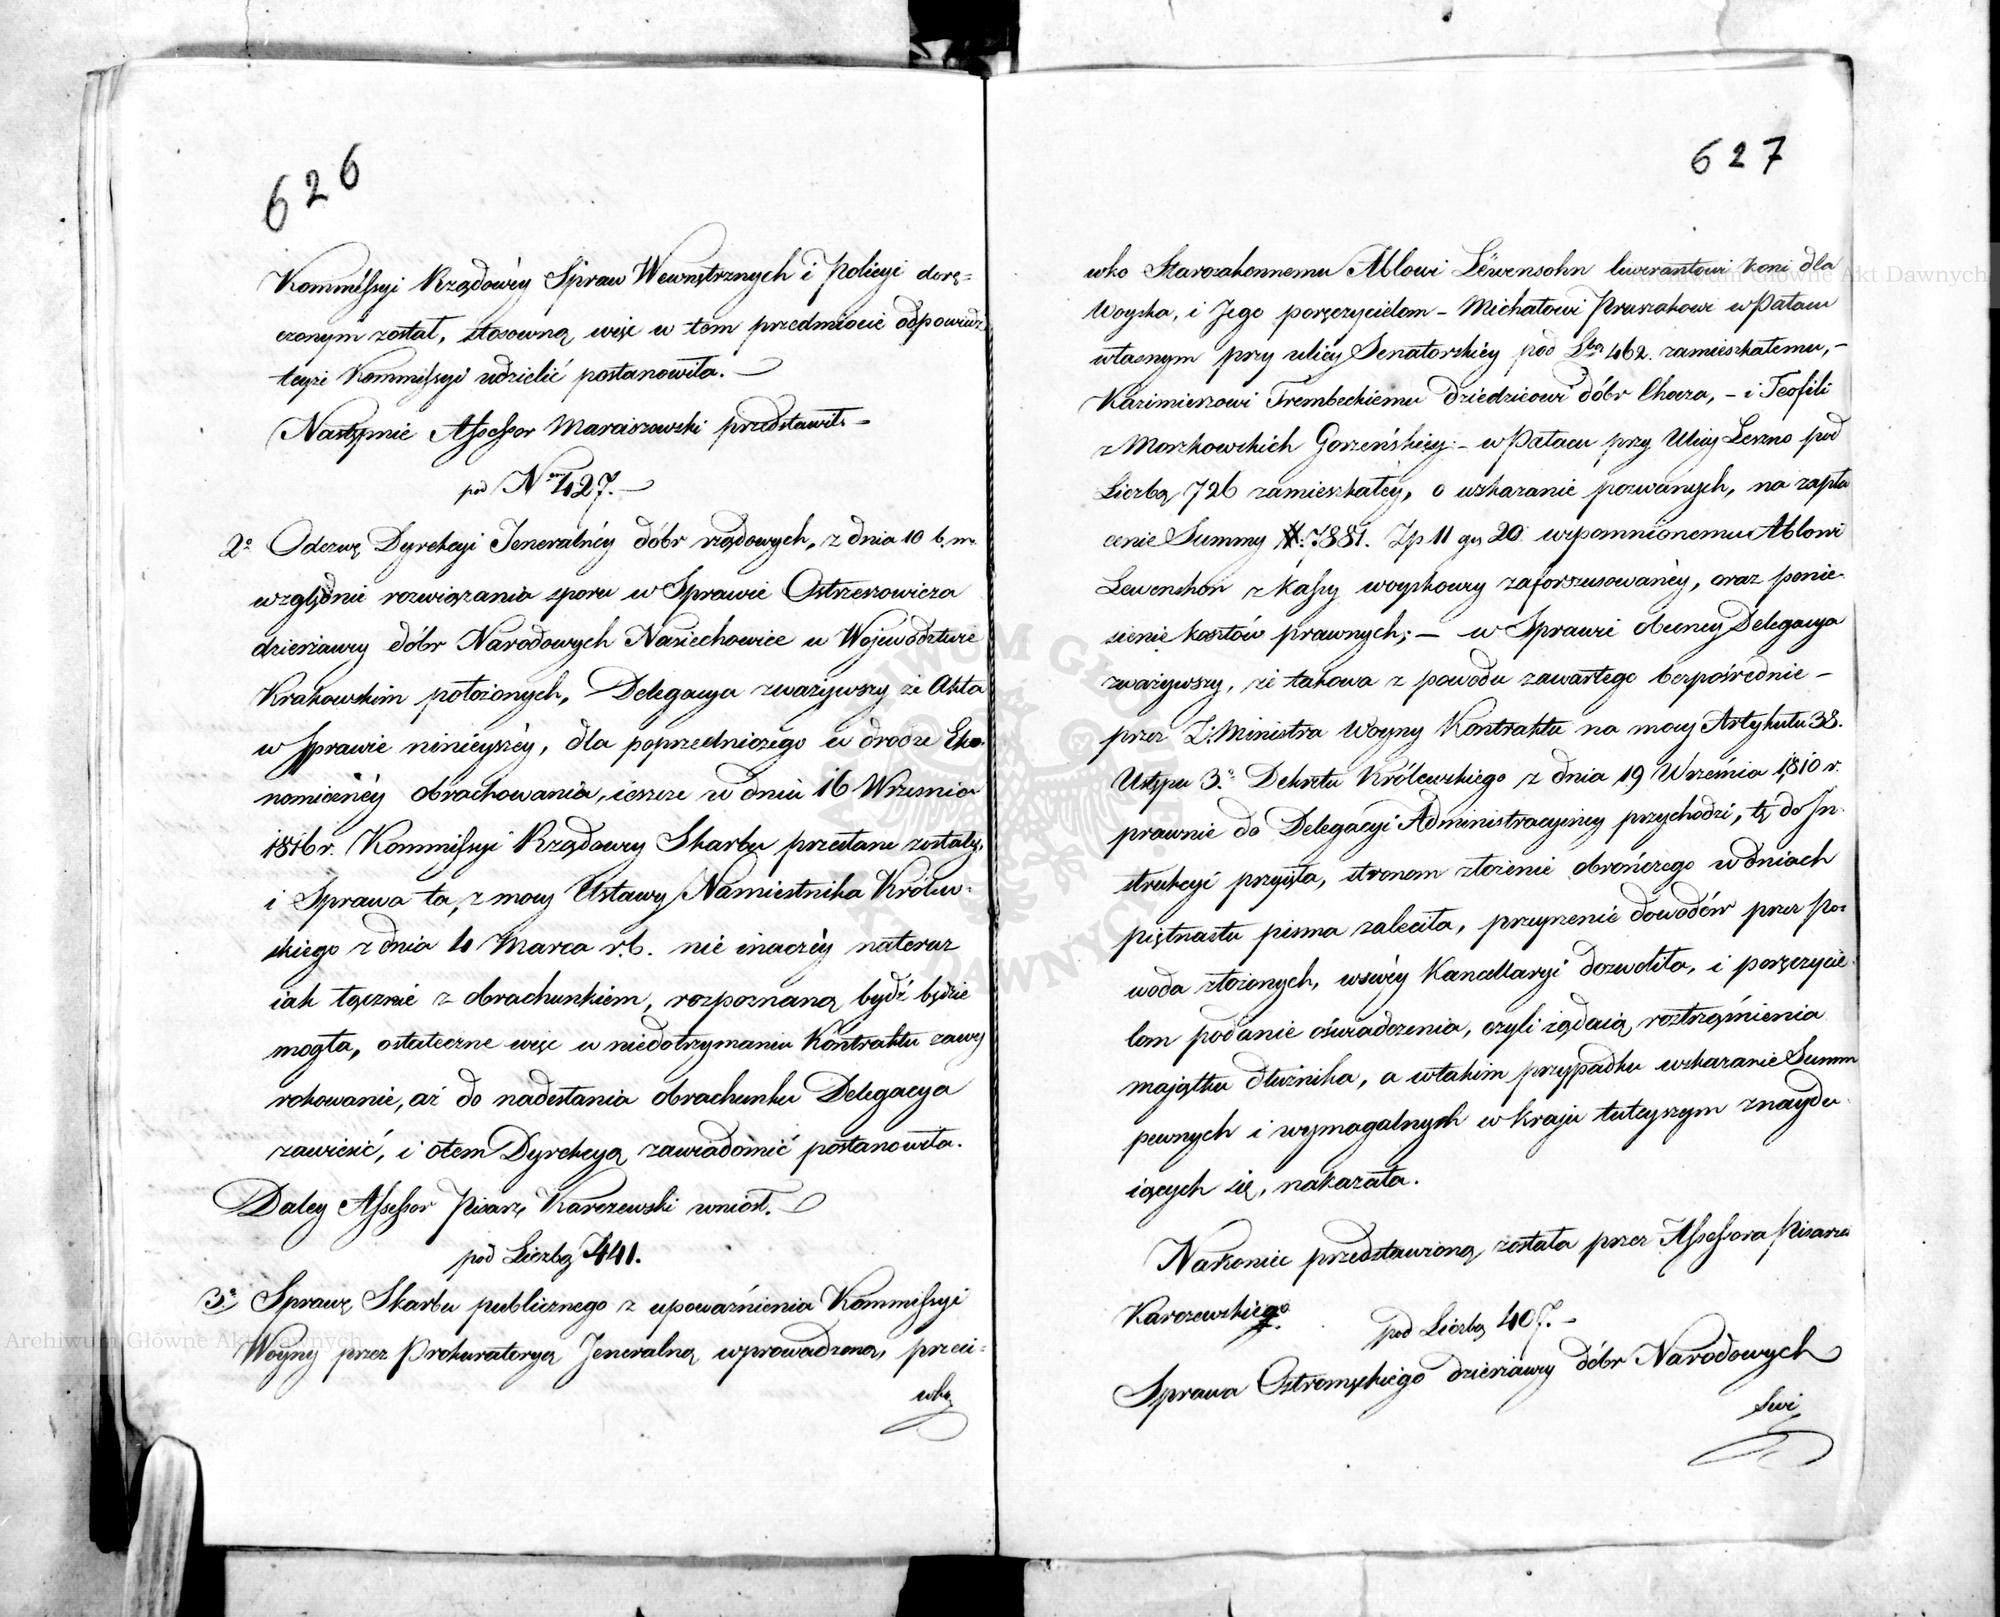 626
Kommissyi Rządowéy Spraw Wewnętrznych i Policyi dorę-
czonym został, stosowną więc w tem przedmiocie odpowiedź
teyże Kommissyi udzielić postanowiła. —
Następnie Assessor Maraiszewski przedstawił. —
pod Nrem 427. —
2o Odezwę Dyrekcyi Jeneralnéy dóbr rządowych, z dnia 10 b. m.
względnie rozwiązania sporu w Sprawie Ostrzeszowicza
dzierżawcy dóbr Narodowych Nasiechowice w Województwie
Krakowskim położonych, Delegacya zważywszy że Akta
w sprawie ninieyszéy, dla poprzedniczego w drodze Eko-
nomicznéy obrachowania, ieszcze w dniu 16 Września
1816 r. Kommissyi Rządowey Skarbu przesłane zostały,
i Sprawa ta, z mocy Ustawy Namiestnika Królew-
skiego z dnia 4 Marca r. b. nie inaczéy nateraz
iak łącznie z obrachunkiem, rozpoznaną bydź będzie
mogła, ostateczne więc w niedotrzymaniu Kontraktu zawy
rokowanie, aż do nadesłania obrachunku Delegacya
zawiesić, i otem Dyrekcyą zawiadomić postanowiła.
Daley Assessor Pisarz Karczewski wniósł. —
pod Liczbą 441.
3o Sprawę Skarbu publicznego z upoważnienia Kommissyi
Woyny przez Prokuratoryą Jeneralną wprowadzoną, przeci-
wko
627
wko Starozakonnemu Ablowi Lewensohn liwerantowi koni dla
Woyska, i Jego poręczycielom – Michałowi Pruszakowi w Pałacu
własnym przy ulicy Senatorskiéy pod Lbą 462. zamieszkałemu, –
Kazimierzowi Trembeckiemu Dziedzicowi dóbr Chocza, – i Teofili
z Morzkowskich Gorzeńskiey – w Pałacu przy Ulicy Leszno pod
Liczbą 726 zamieszkałéy, o wskazanie pozwanych, na zapła
cenie Summy 7881. Zp 11 gr 20 wspomnionemu Ablowi
Lewenshon z Kassy woyskowey zaforszusowanéy, oraz ponie-
sienie kosztów prawnych; — w Sprawie obecney Delegacya
zważywszy, że takowa z powodu zawartego bezpośrednie –
przez Ministra Woyny Kontraktu na mocy Artykułu 38.
Ustępu 3o Dekretu Królewskiego z dnia 19 Września 1810 r.
prawnie do Delegacyi Administracyiney przychodzi, tę do In-
strukcyi przyięła, stronom złożenie obrończego w dniach
piętnastu pisma zaleciła, przeyrzenie dowodów przez Po-
woda złożonych, wswéy Kancellaryi dozwoliła, i poręczycie-
lom podanie oświadczenia, czyli żądaią roztrząśnienia
majątku dłużnika, a wtakim przypadku wskazanie Summ
pewnych i wymagalnych w kraju tuteyszym znaydu-
iących się, nakazała.
Nakoniec przedstawioną została przez Assessora Pisarza
Karczewskiego
pod Liczbą 407. –
Sprawa Ostromęckiego dzierżawcy dóbr Narodowych
Swi
Archiwum Główne Akt Dawnych